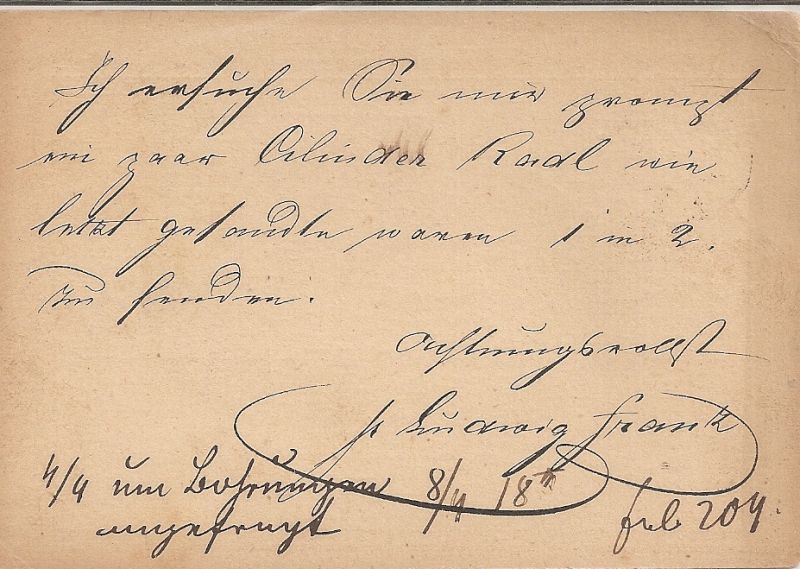 Ich ersuche Sie mir prompt
ein paar Cilinder Radl wie
letzt gesandte waren 1 in 2.
zu senden.
Achtungsvollst
Ludwig Frank
4/4 um Bohrungen 8/4 18
angefragt 204